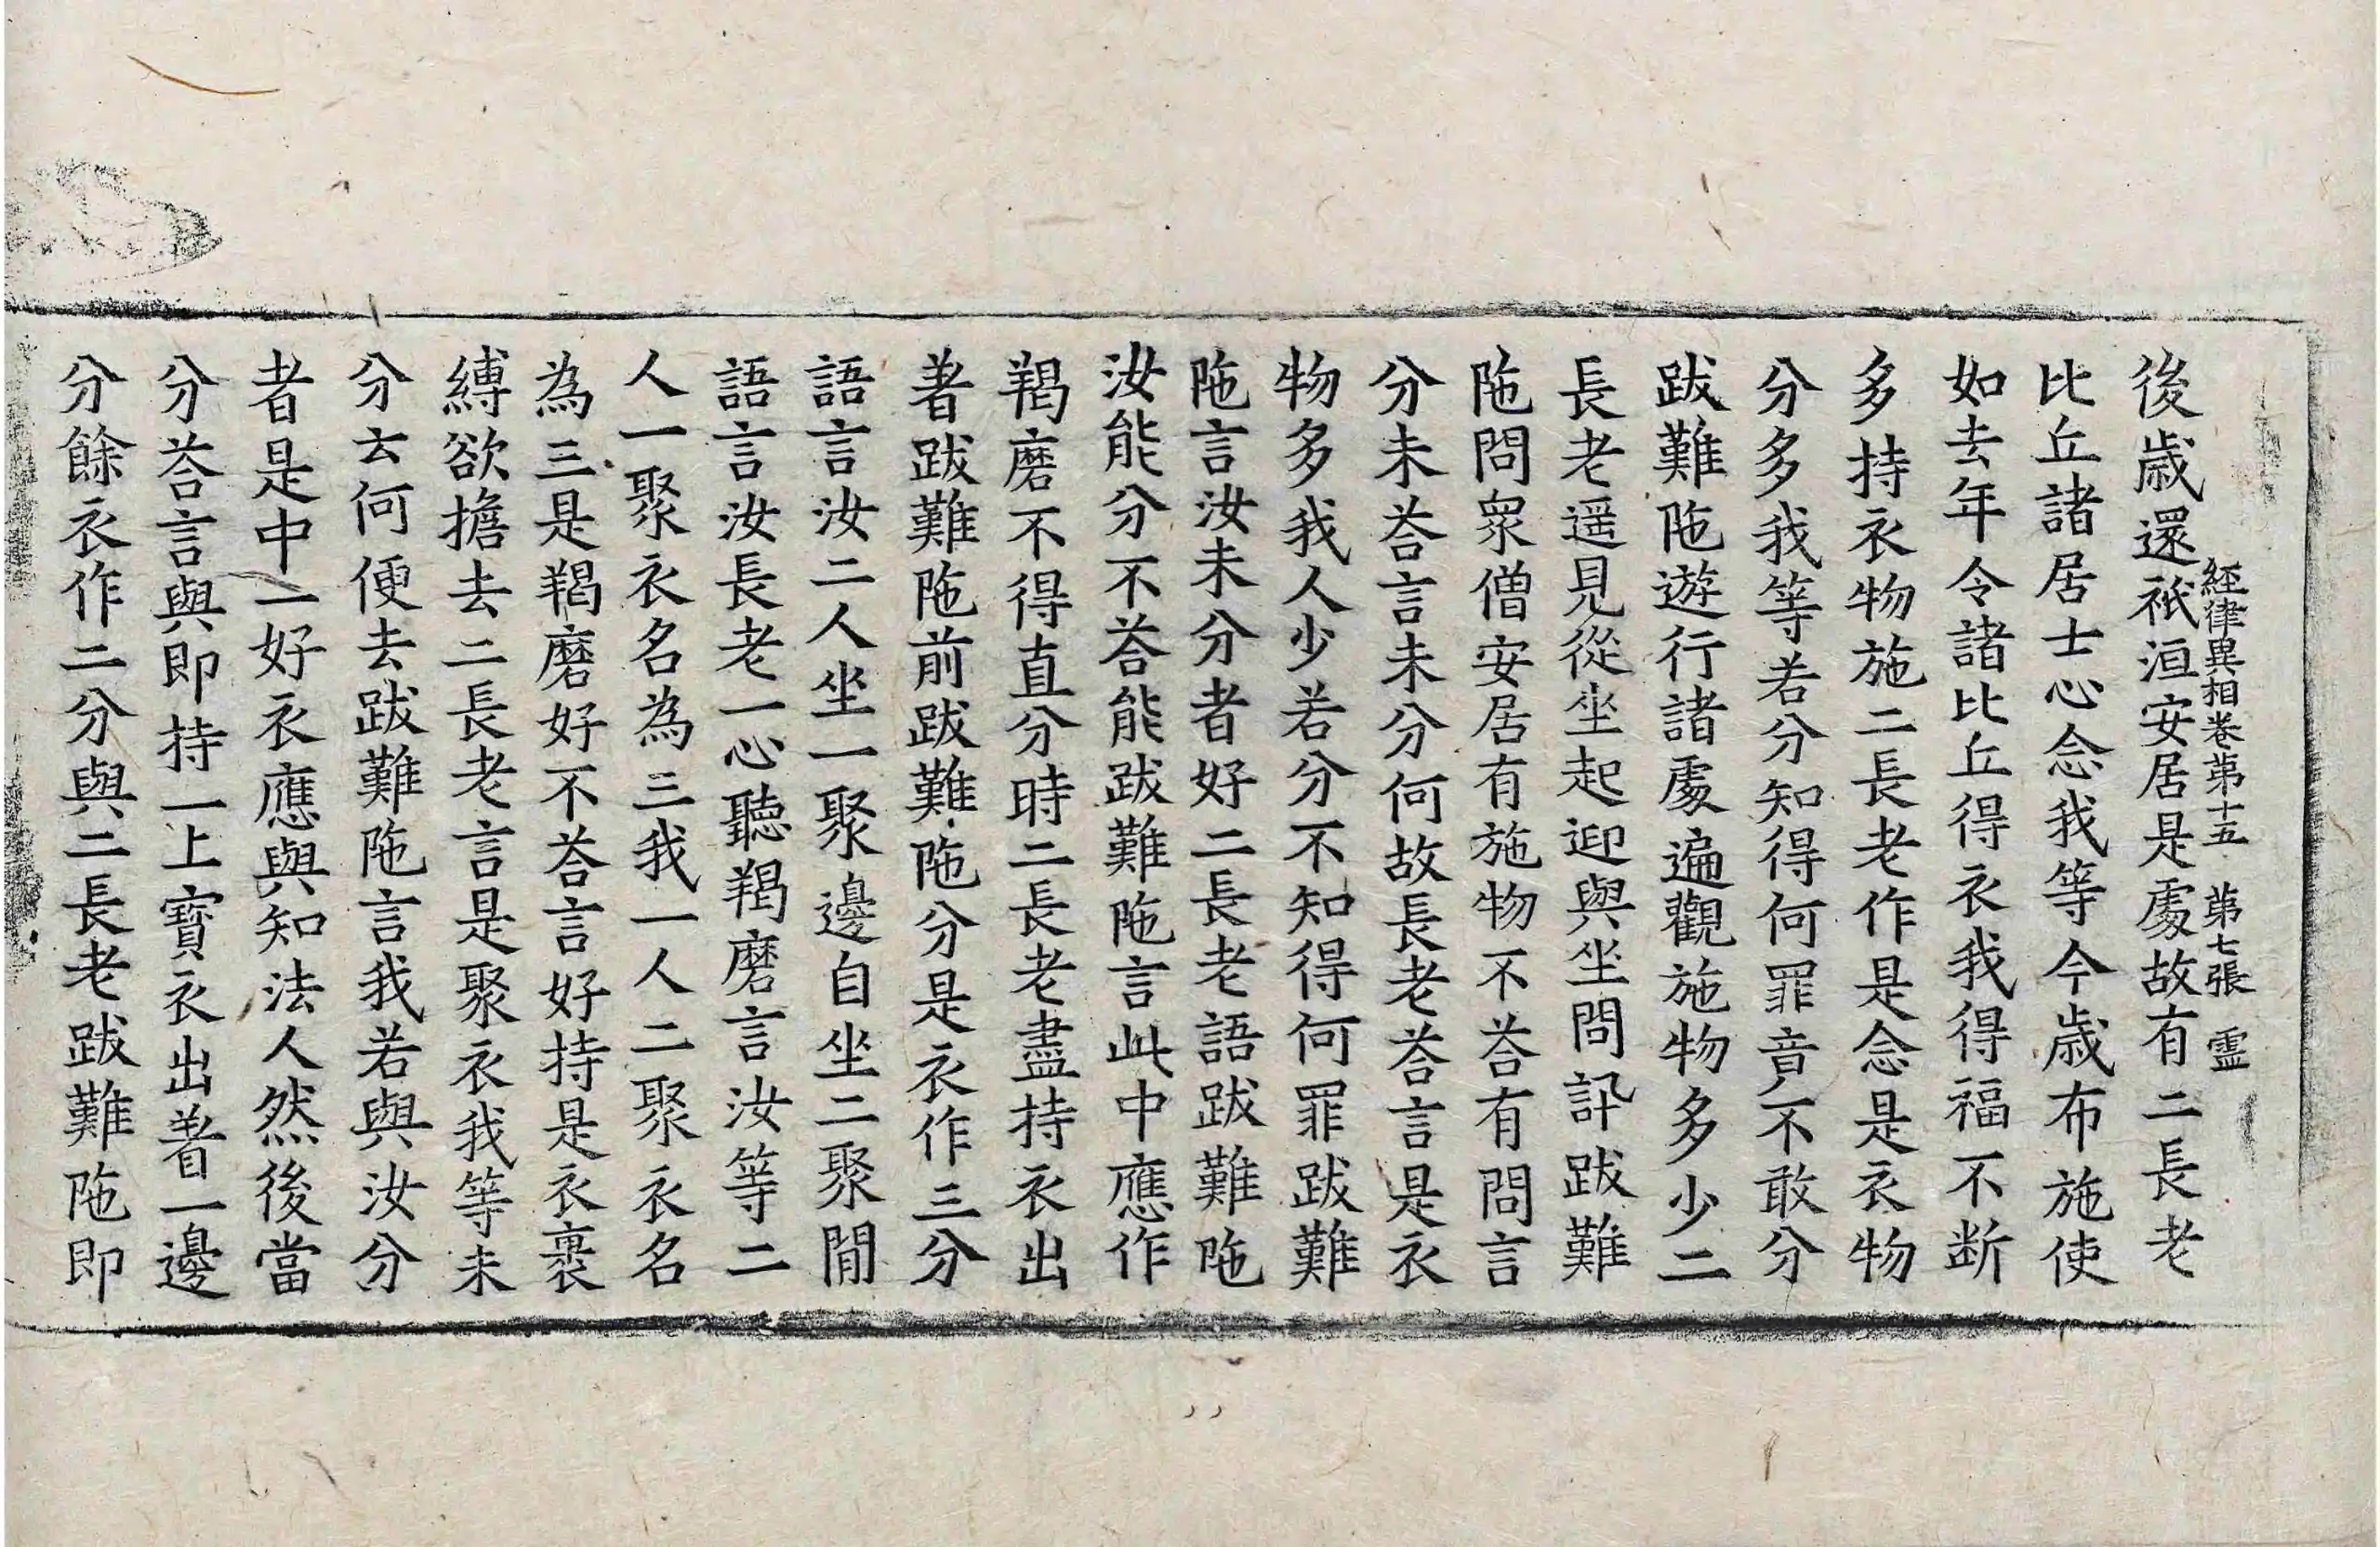 經律異相卷第十五 第七張 靈
後歲還祇洹安居是處故有二長老
比丘諸居士心念我等今歲布施使
如去年令諸比丘得衣我得福不断
多持衣物施二長老作是念是衣物
分多多我等若分知得何罪音不敢分
跋難陁遊行諸處遍觀施物多少二
長老遥見從坐起迎與坐問訊跋難
陁問眾僧安居有施物不荅有問言
分未荅言未分何故長老荅言是衣
物多我人少若分不知得何罪跋難
陁言汝未分者好二長老語跋難陁
汝能分不荅能跋難陁言此中應作
羯磨不得直分時二長老盡持衣出
著跋難陁前跋難陁分是衣作三分
語言汝二人坐一聚邊自坐二聚間
語言汝長老一心聽羯磨言汝等二
人一聚衣名為三我一人二聚衣名
為三是羯磨好不荅言好持是衣裹
縛欲擔去二長老言是聚衣我等未
分去何便去跋難陁言我若與汝分
者是中一好衣應與知法人然後當
分荅言與即持一上寶衣出著一邊
分餘衣作二分與二長老跋難陁即